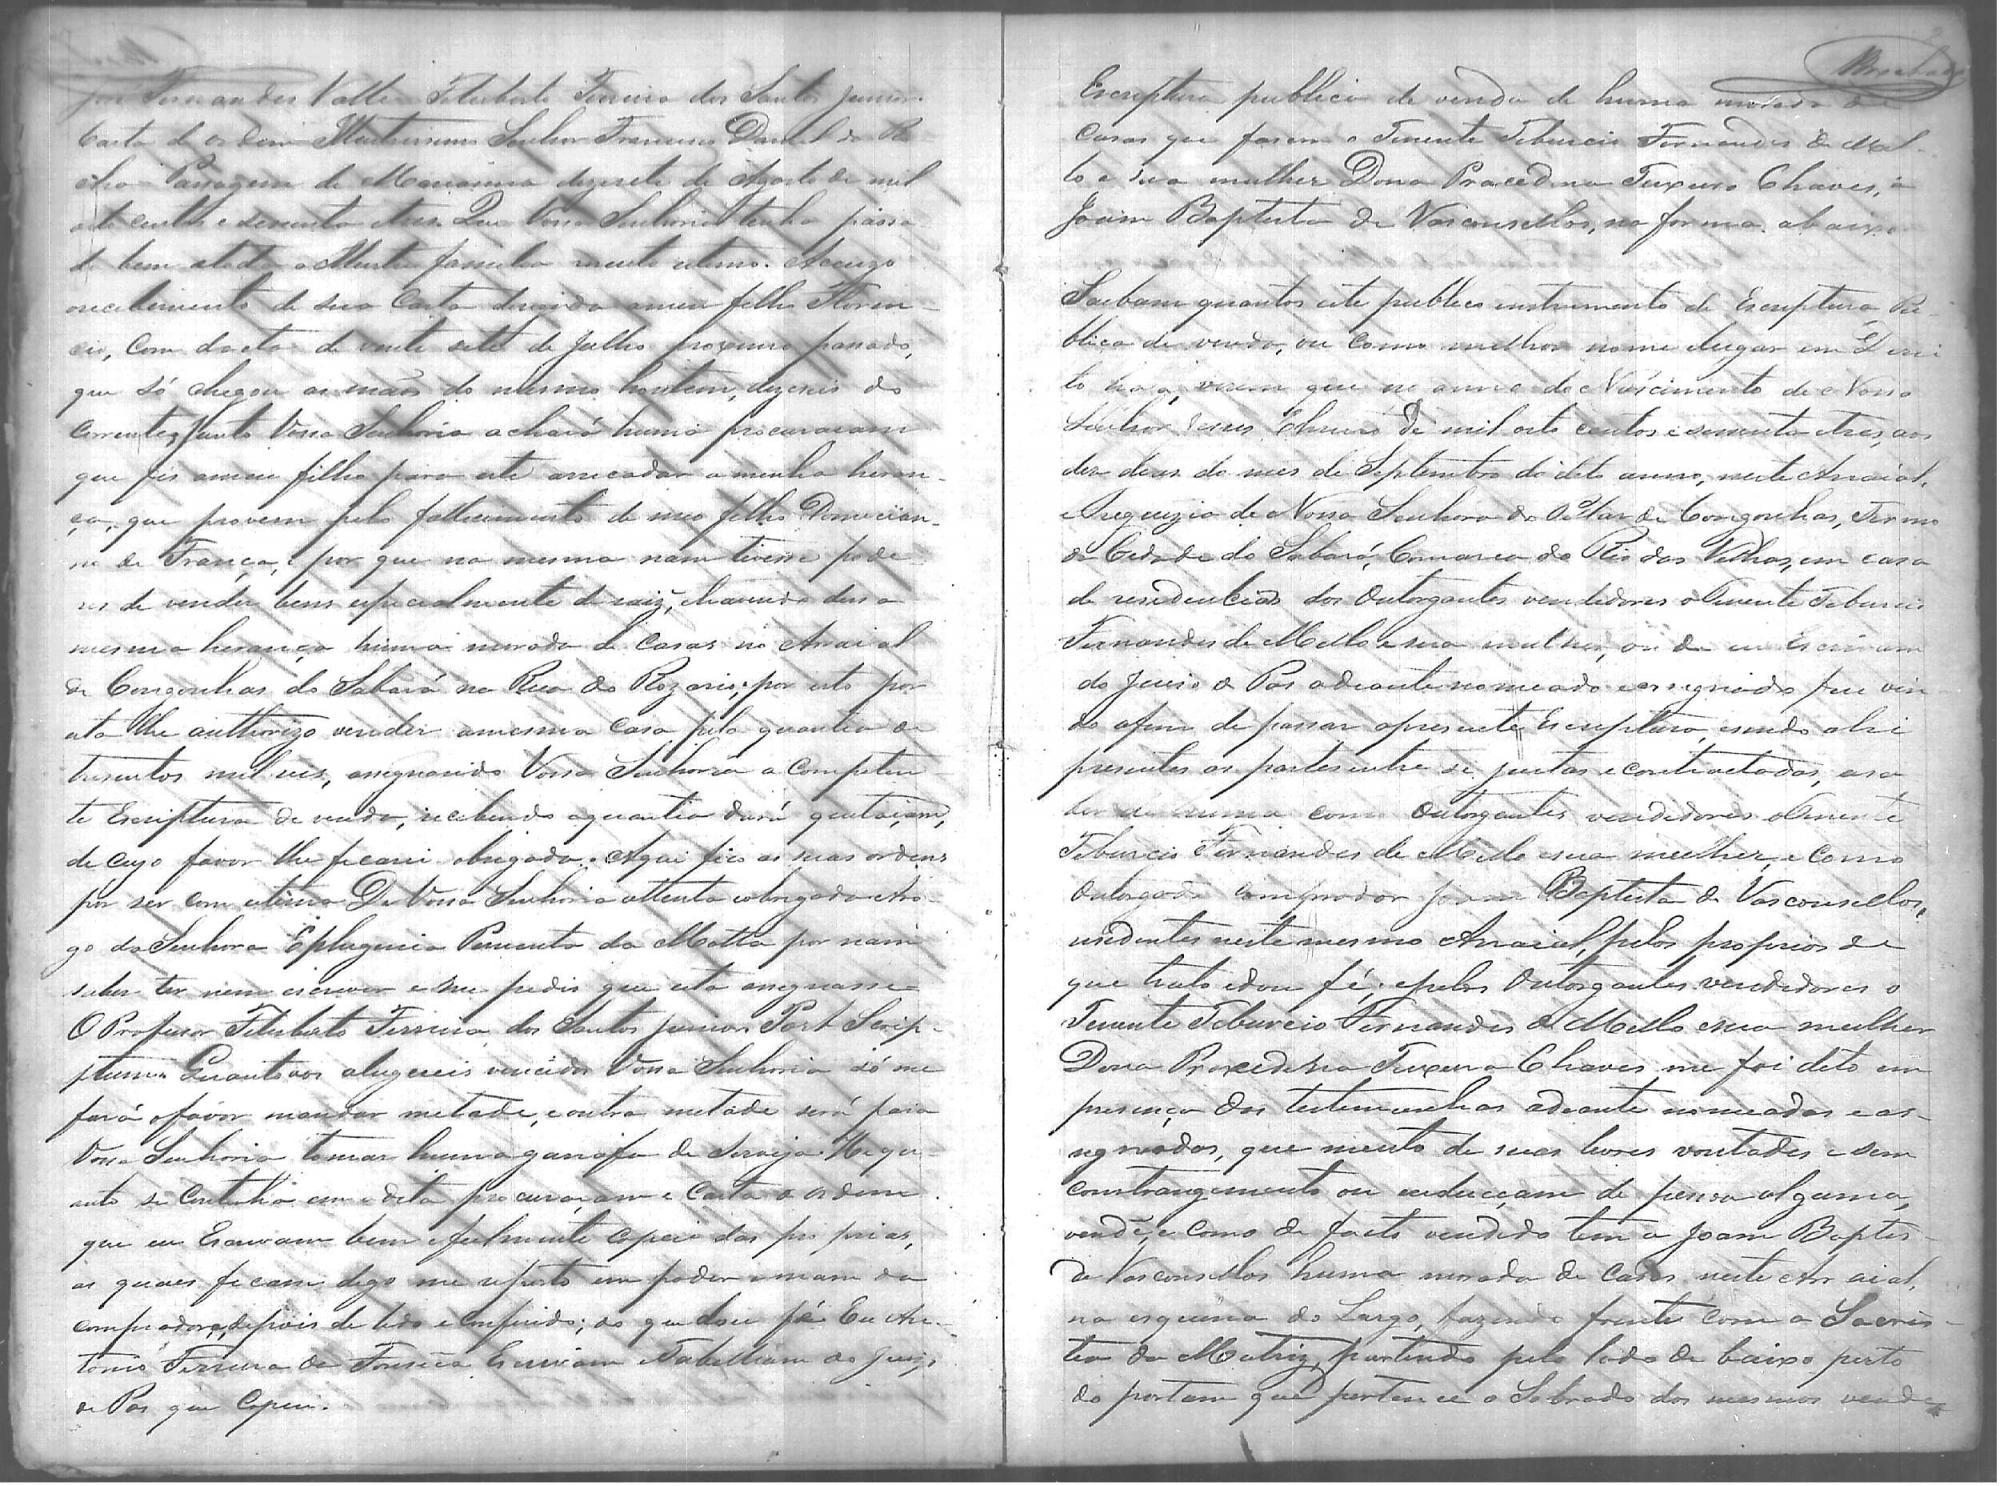 José Fernandes Valle Filisberto Ferreira dos Santos Junior.
Carta de ordem Illustrissimo Senhor Francisco Daniel da Ro-
cha Passagem de Marianna dezesete de Agosto de mil
oito centos e setenta e tres. Que Vossa Senhoria tenha passa-
do bem e toda a Illustre familia muito estimo. Accuzo
orecebimento de sua Carta dirigida a meu filho Floren-
cio, Com data de vinte sete de Julho proximo passado,
que só chegou as mãos do mesmo hontem, dezeseis do
Corrente, junto Vossa Senhoria achará huma procuracam
que fis a meu filho para este arrecadar a minha heran-
ça, que provem pelo fallecimento de meo filho Domician-
no de França, e por que na mesma nam tivesse pode-
res de vender bens especialmente de raiz, havendo des a
mesma herança huma morada de Casas no Arraial
de Congonhas do Sabará na Rua do Rozario; por isto por
esta lhe authorizo vender a mesma Casa pela quantia de
tresentos mil reis, assignando Vossa Senhoria a Competen
te Escriptura de venda, recebendo a quantia dará quitaçam,
de cujo favor lhe ficarei obrigada. Aqui fico as suas ordens
por ser com estima De Vossa Senhoria attenta e obrigada A ro-
go da Senhora Ephigenia Pimenta da Motta por nam
saber ler nem escrever e me pedir que esta assignasse
O Professor Filisberto Ferreira dos Santos Junior. Post Scrip-
ptum. Quanto aos alugueis vencidos Vossa Senhoria só me
fará o favor mandar metade, e outra metade será para
Vossa Senhoria tomar huma garrafa de Serveja. He qu-
anto se Continha em a dita procuraçam e Carta de ordem
que eu Escrivam bem e fielmente copiei das proprias,
as quaes ficam digo me reporto em poder e mam da
compradora, depois de lido e Conferido; do que dou fé Eu An-
tonio Ferreira da Fonseca Escrivam e Tabelliam do Juizo
de Pas que Copiei.
Escriptura publica de venda de huma morada de
Casas que fasem o Tenente Teburcio Fernandes de Mel-
lo e sua mulher Dona Praced na Teixeira Chaves, a
Joam Baptista de Vasconsellos, na forma abaixo
Saibam quantos este publico instrumento de Escriptura Pu-
blica de venda, ou como melhor nome e lugar em Direi
to haja, virem que no anno do Nascimento de Nosso
Senhor Jesus Christo de mil oito centos e setenta e tres, aos
des dias do mes de Septembro do dito anno, neste Arraial,
e Freguezia de Nossa Senhora do Pillar de Congonhas, Termo
da Cidade do Sabará, Comarca do Rio das Velhas, em casa
de residencias dos Outorgantes vendedores o Tenente Teburcio
Fernandes de Mello e sua mulher, onde eu Escrivam
do Juizo de Pas adeante nomeado e assignado fui vin-
do afim de passar apresente Escriptura, sendo ahi
presentes as partes entre se justas e contractadas, a sa
ber de huma como Outorgantes vendedores o Tenente
Teburcio Fernandes de Mello e sua mulher, e como
Outorgado Comprador Joam Baptista de Vasconsellos,
residentes neste mesmo Arraial, pelos proprios de
que trato e dou fé; e pelos Outorgantes vendedores o
Tenente Teburcio Fernandes de Mello e sua mulher
Dona Praxedesna Teixeira Chaves me foi dito em
presença das testemunhas adeante nomeadas e as-
signadas, que muito de suas livres vontades e sem
constrangimento ou enducçam de pessoa alguma,
vendê, e como de facto vendido tem a Joam Baptis-
de Vasconsellos huma morada de Casas neste Arraial,
na esquina do Largo, fazendo frente com a Sacris-
tia da Matriz, partindo pelo lado de baixo perto
do portam que pertence o Sobrado dos mesmos vende